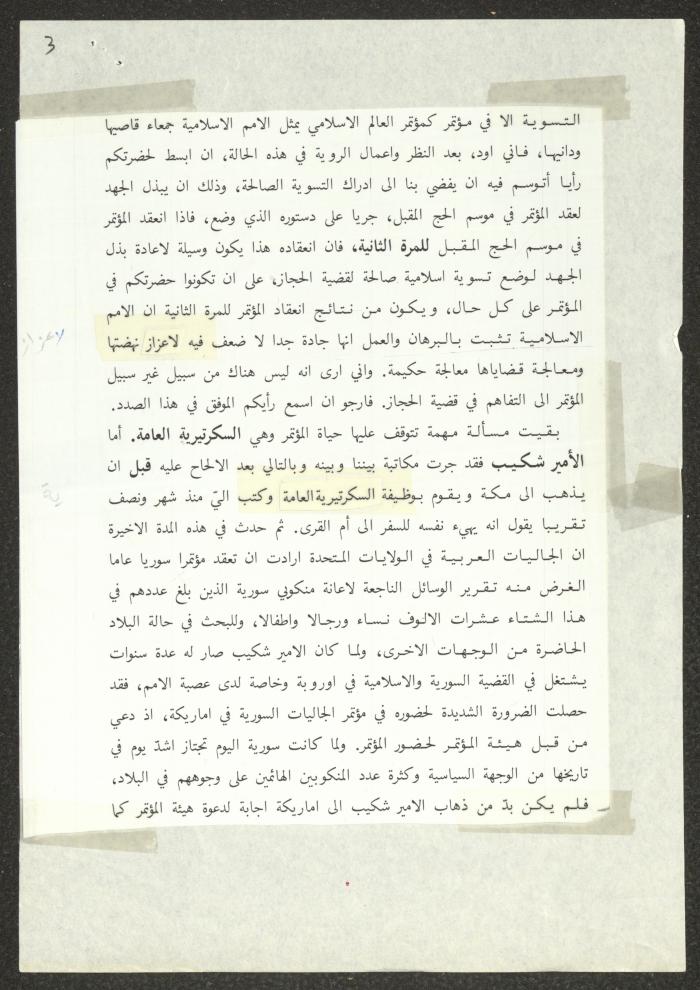 3
التسوية الا في مؤتمر كمؤتمر العالم الاسلامي يمثل الامم الاسلامية جمعاء قاصيها
ودانيها، فاني اود، بعد النظر واعمال الروية في هذه الحالة، ان ابسط لحضرتكم
رأيا أتوسم فيه ان يفضي بنا الى ادراك التسوية الصالحة، وذلك ان يبذل الجهد
لعقد المؤتمر في موسم الحج المقبل، جريا على دستوره الذي وضع، فاذا انعقد المؤتمر
في موسم الحج المقبل للمرة الثانية، فان انعقاده هذا يكون وسيلة لاعادة بذل
الجهد لوضع تسوية اسلامية صالحة لقضية الحجاز، على ان تكونوا حضرتكم في
المؤتمر على كل حال، ويكون من نتائج انعقاد المؤتمر للمرة الثانية ان الامم
الاسلامية تثبت بالبرهان والعمل انها جادة جدا لا ضعف فيه لاعزاز نهضتها
لاعزاز
ومعالجة قضاياها معالجة حكيمة. واني ارى انه ليس هناك من سبيل غير سبيل
المؤتمر الى التفاهم في قضية الحجاز. فارجو ان اسمع رأيكم الموفق في هذا الصدد.
بقيت مسألة مهمة تتوقف عليها حياة المؤتمر وهي السكرتيرية العامة. أما
الأمير شكيب فقد جرت مكاتبة بيننا وبينه وبالتالي بعد الالحاح عليه قبل ان
يذهب الى مكة ويقوم بوظيفة السكرتيرية العامة وكتب اليّ منذ شهر ونصف
ية
تقريبا يقول انه يهيء نفسه للسفر الى أم القرى. ثم حدث في هذه المدة الاخيرة
ان الجاليات العربية في الولايات المتحدة ارادت ان تعقد مؤتمرا سوريا عاما
الغرض منه تقرير الوسائل الناجعة لاعانة منكوبي سورية الذين بلغ عددهم في
هذا الشتاء عشرات الالوف نساء ورجالا واطفالا، وللبحث في حالة البلاد
الحاضرة من الوجهات الاخرى، ولما كان الامير شكيب صار له عدة سنوات
يشتغل في القضية السورية والاسلامية في اوروبة وخاصة لدى عصبة الامم، فقد
حصلت الضرورة الشديدة لحضوره في مؤتمر الجاليات السورية في اماريكة، اذ دعي
من قبل هيئة المؤتمر لحضور المؤتمر. ولما كانت سورية اليوم تجتاز اشدّ يوم في
تاريخها من الوجهة السياسية وكثرة عدد المنكوبين الهائمين على وجوههم في البلاد،
فلم يكن بدّ من ذهاب الامير شكيب الى اماريكة اجابة لدعوة هيئة المؤتمر كما